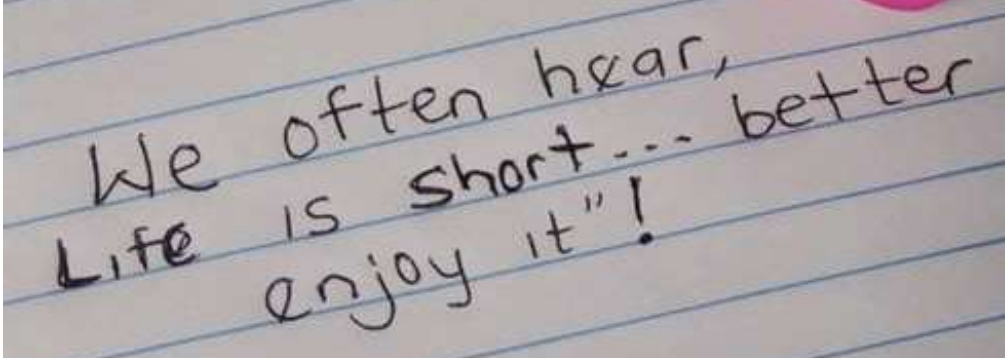 We often hear,
Life is short... better
enjoy it"!